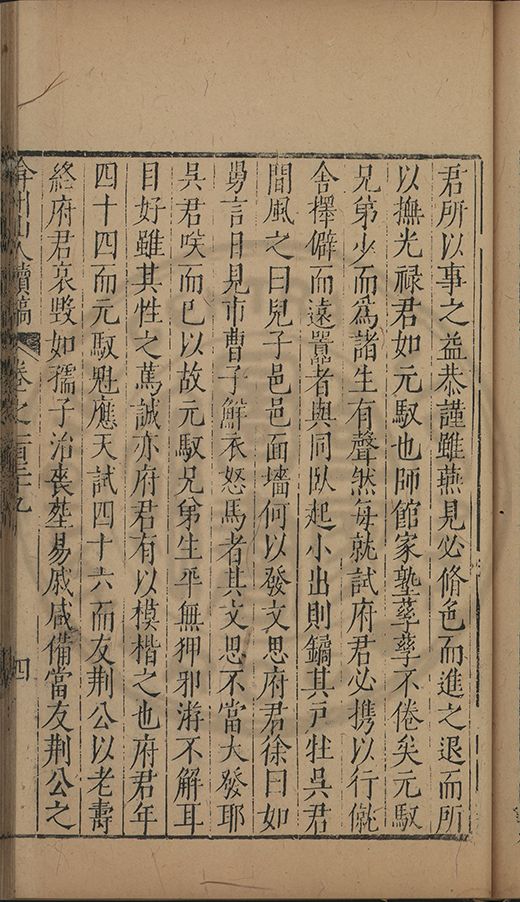 君所以事之益恭謹雖燕見必脩色而進之退而所
以撫光祿君如元馭也師館家塾孳孳不倦矣元馭
兄弟少而爲諸生有聲然每就試府君必携以行僦
舍擇僻而遠囂者與同臥起小出則鐍其戸牡吳君
間風之曰兒子邑邑面墻何以發文思府君徐曰如
吳君唉而已以故元馭兄弟生平無狎邪游不解耳
昜言日見市曹子鮮衣怒馬者其文思不當大發耶
目好雖其性之篤誠亦府君有以模楷之也府君年
四十四而元馭魁應天試四十六而友荆公以老壽
終府君哀毀如孺子治喪塟易戚咸備當友荆公之
弇州山人續稿 卷之一百三十九 四